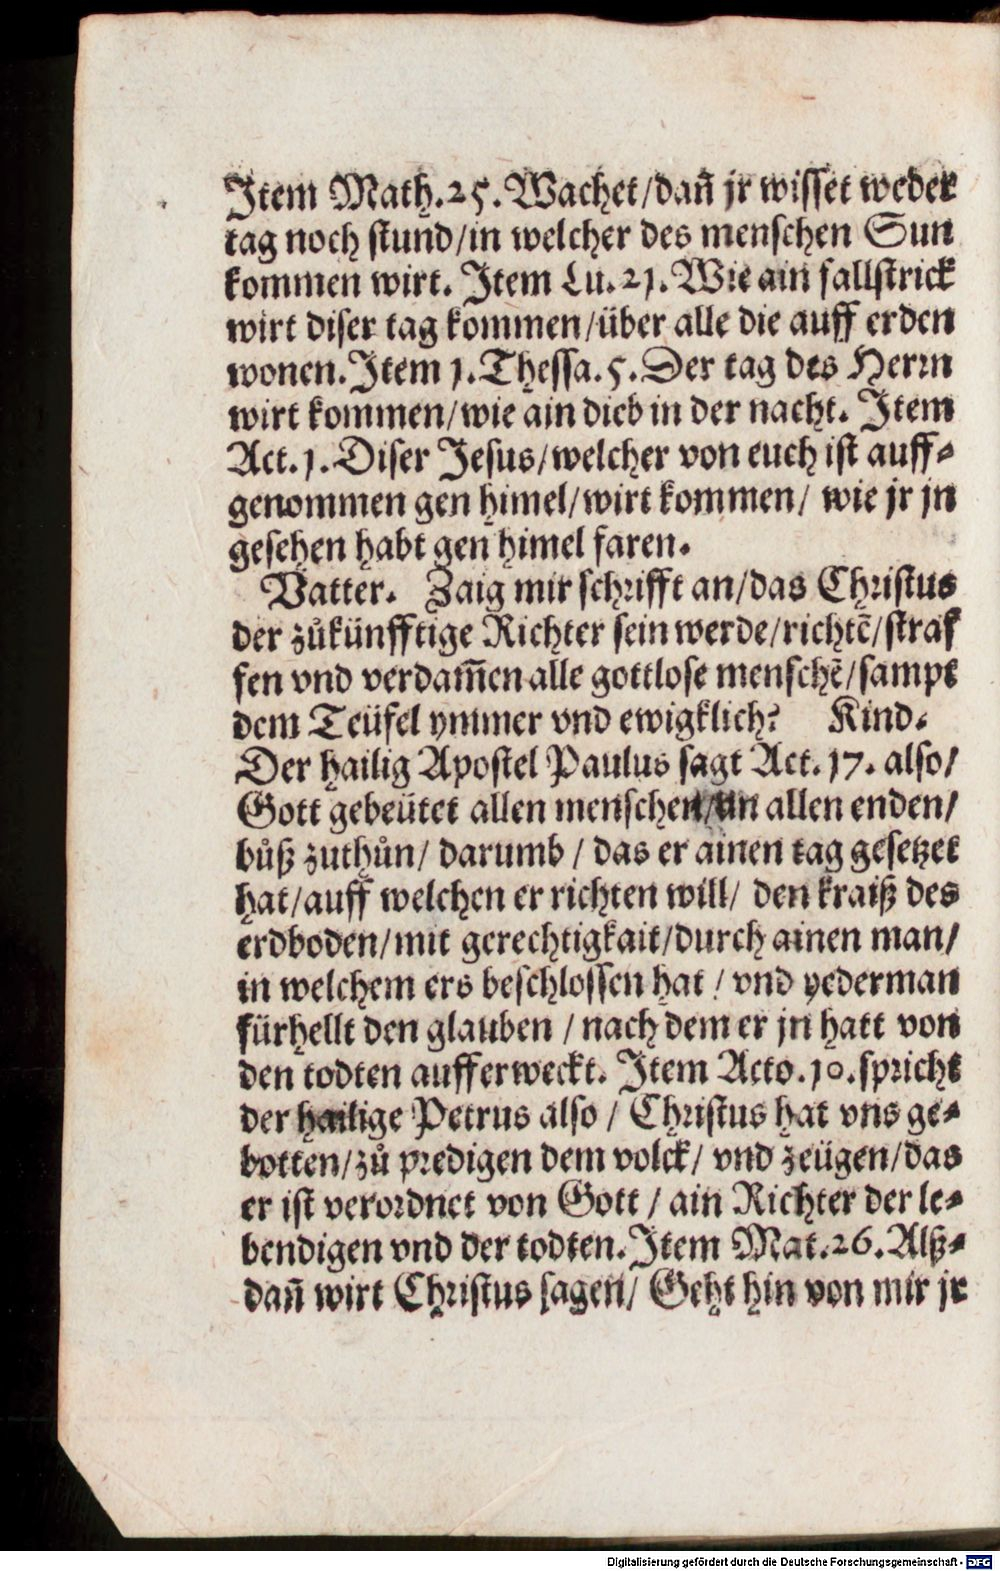 Item Math.25. Wachet/dañ jr wisset weder
tag noch stund/in welcher des menschen Sun
kommen wirt. Item Lu.21. Wie ain fallstrick
wirt diser tag kommen/über alle die auff erden
wonen. Item 1. Thessa.5. Der tag des Herrn
wirt kommen/wie ain dieb in der nacht. Item
Act.1. Diser Jesus/welcher von euch ist auff-
genommen gen himel/wirt kommen/ wie jr jn
gesehen habt gen himel faren.
Vatter. Zaig mir schrifft an/das Christus
der zůkünfftige Richter sein werde/richtē/straf
fen vnd verdam̃en alle gottlose menschē/sampt
dem Teüfel ymmer vnd ewigklich? Kind.
Der hailig Apostel Paulus sagt Act.17. also/
Gott gebeütet allen menschen/an allen enden/
bůß zuthůn/ darumb / das er ainen tag gesetzet
hat/auff welchen er richten will/ den kraiß des
erdboden/mit gerechtigkait/durch ainen man/
in welchem ers beschlossen hat / vnd yederman
fürhellt den glauben / nach dem er jn hatt von
den todten aufferweckt. Item Acto.10. spricht
der hailige Petrus also / Christus hat vns ge-
botten/zů predigen dem volck/ vnd zeügen/das
er ist verordnet von Gott / ain Richter der le-
bendigen vnd der todten. Item Mat.26. Alß-
dañ wirt Christus sagen/ Geht hin von mir jr
Digitalisierung gefördert durch die Deutsche Forschungsgemeinschaft - DFG